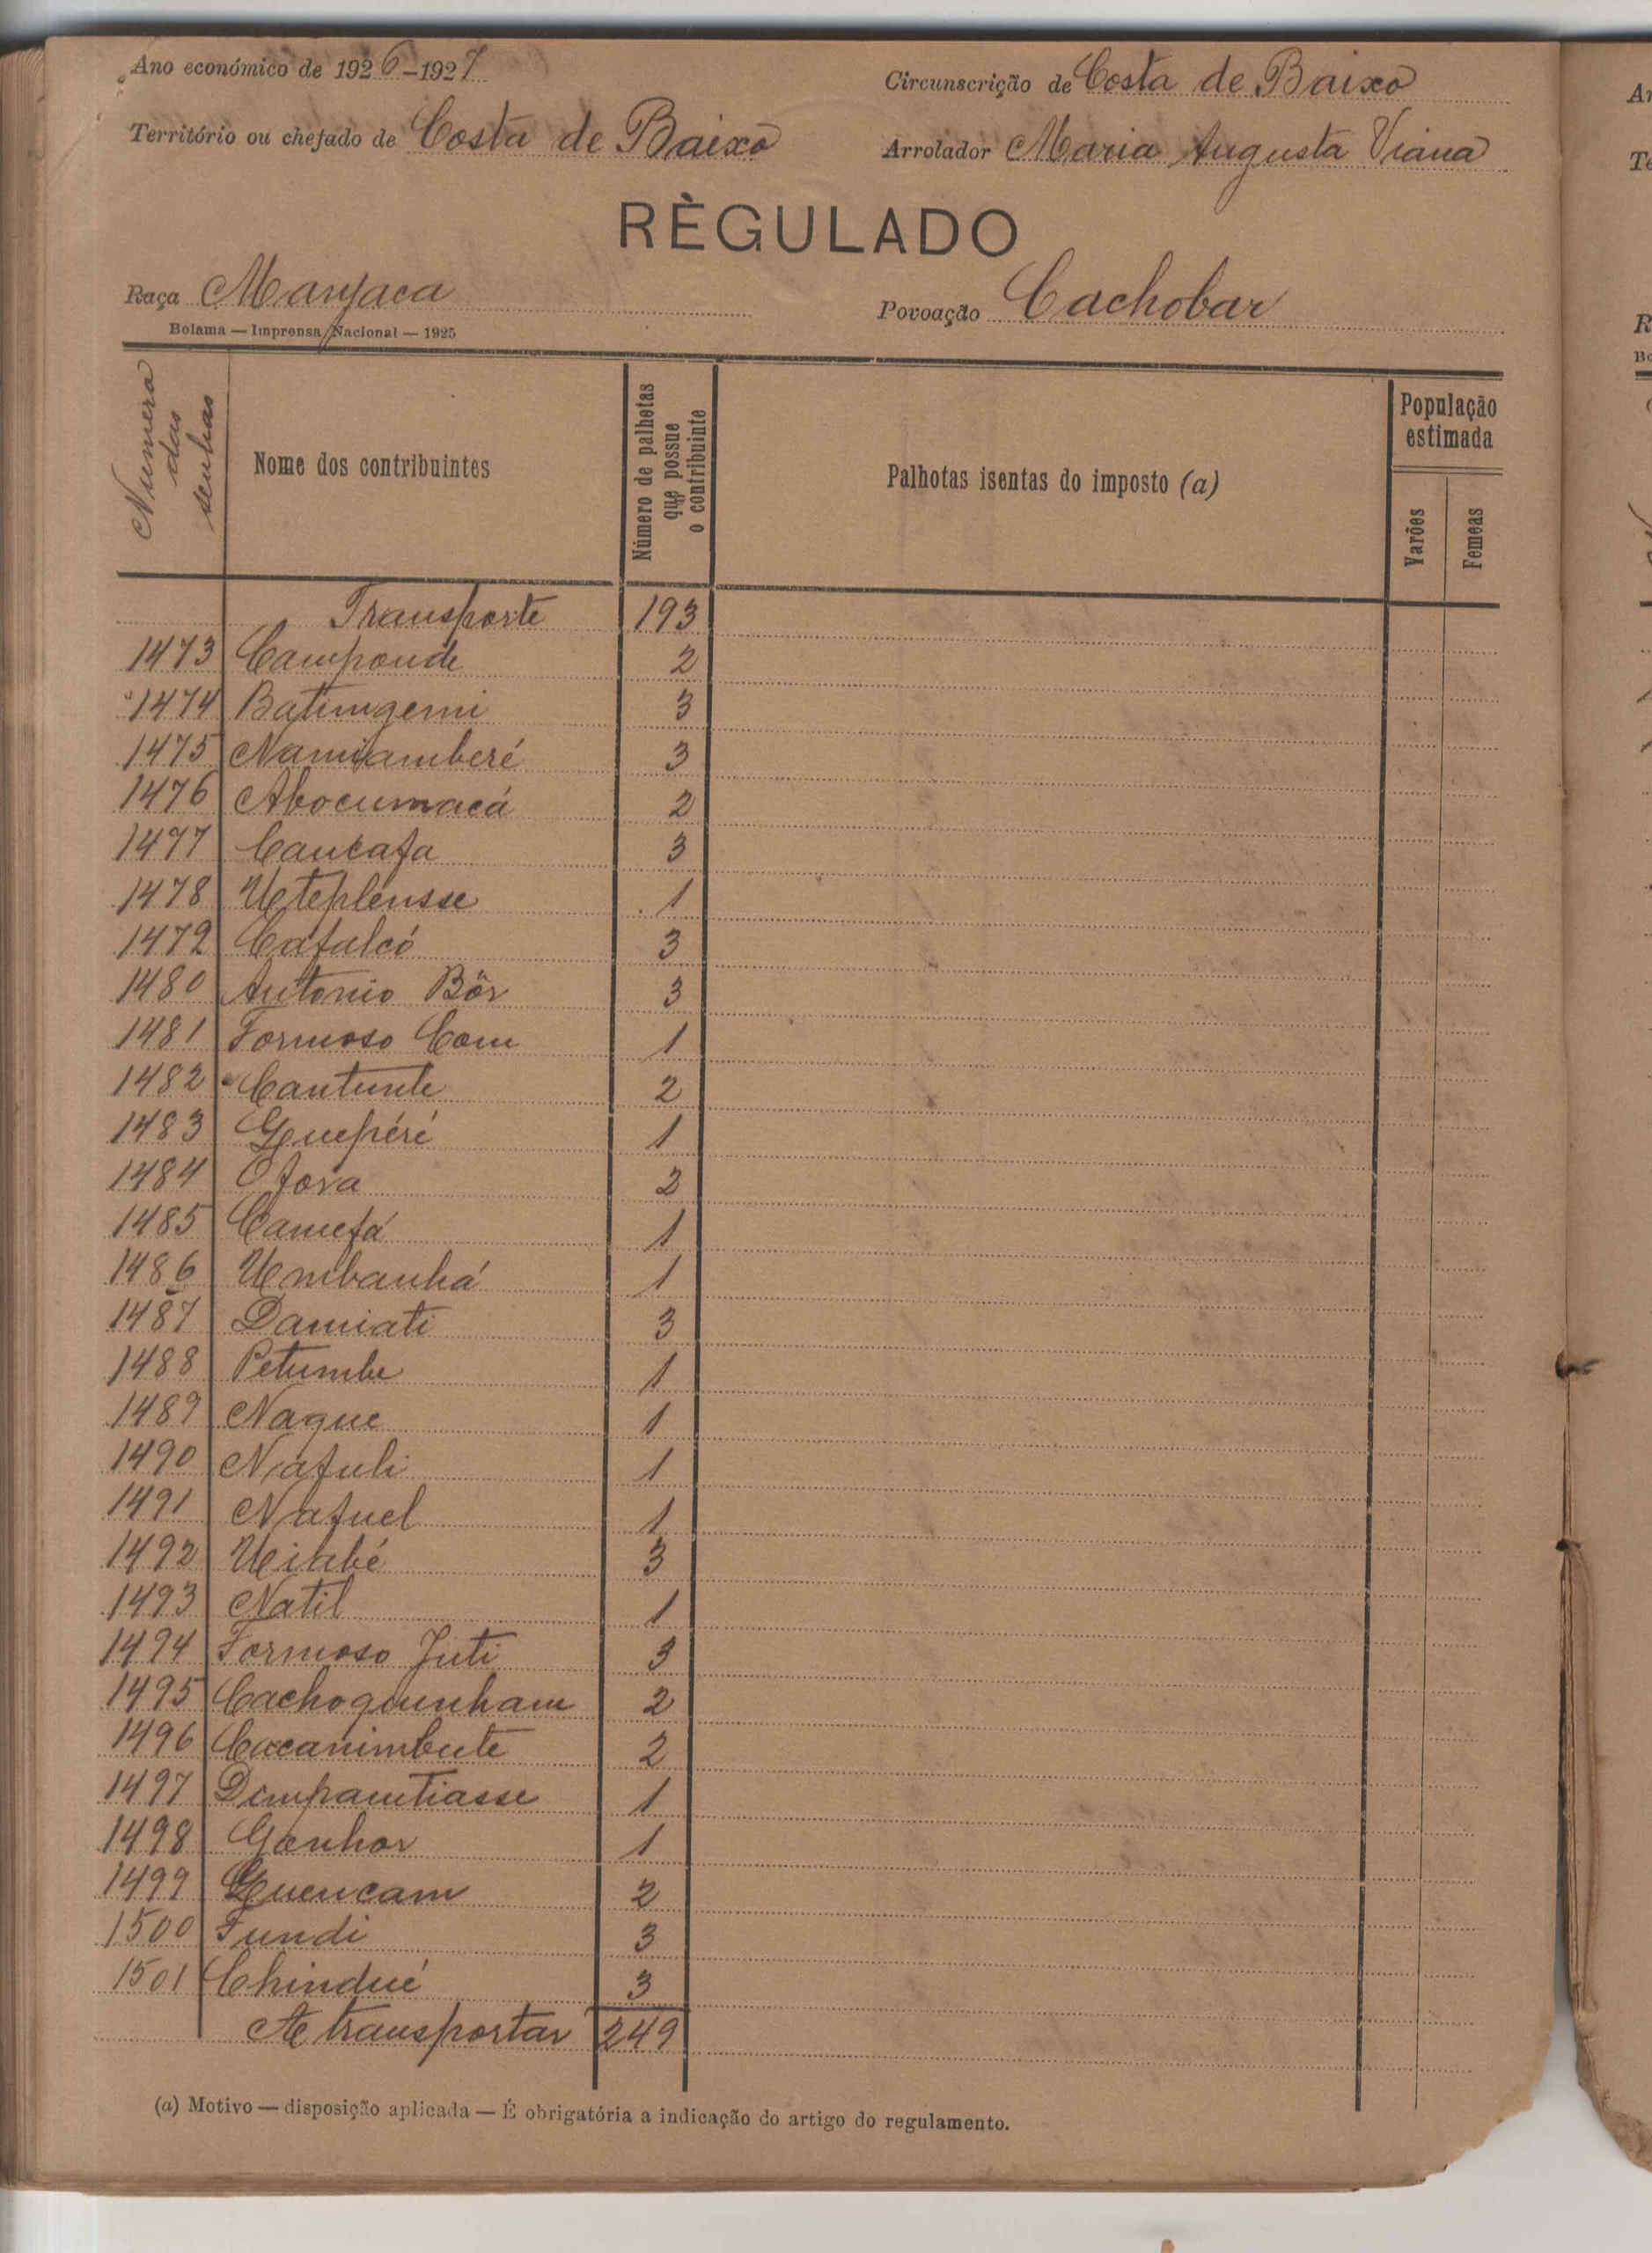 Ano económico de 1926-1927
Circunscrição de Costa de Baixo
Território ou chefado de Costa de Baixo
Arrolador Maria Augusta Viana
RÈGULADO
Raça Manjaca
Povoação Cachobar
Bolama — Imprensa Nacional — 1925
Numero das senhas
Nome dos contribuintes
Número de palhotas que possue o contribuinte
Palhotas isentas do imposto (a)
População estimada
Varões
Femeas
Transporte 193
1473 Camponde 2
1474 Batimgemi 3
1475 Namiamberé 3
1476 Abocumacá 2
1477 Cancafa 3
1478 Uteplensse 1
1479 Cafalcó 3
1480 Antonio Bôr 3
1481 Formoso Com 1
1482 Cantunte 2
1483 Guepéré 1
1484 Ofora 2
1485 Camefá 1
1486 Umbanhá 1
1487 Damiati 3
1488 Petumbe 1
1489 Naque 1
1490 Nafuli 1
1491 Nafuel 1
1492 Uiabé 3
1493 Natil 1
1494 Formoso Juti 3
1495 Cachoquinham 2
1496 Cacanimbute 2
1497 Dempamtiasse 1
1498 Ganhor 1
1499 Guencam 2
1500 Fundi 3
1501 Chindué 3
A transportar 249
(a) Motivo — disposição aplicada — É obrigatória a indicação do artigo do regulamento.